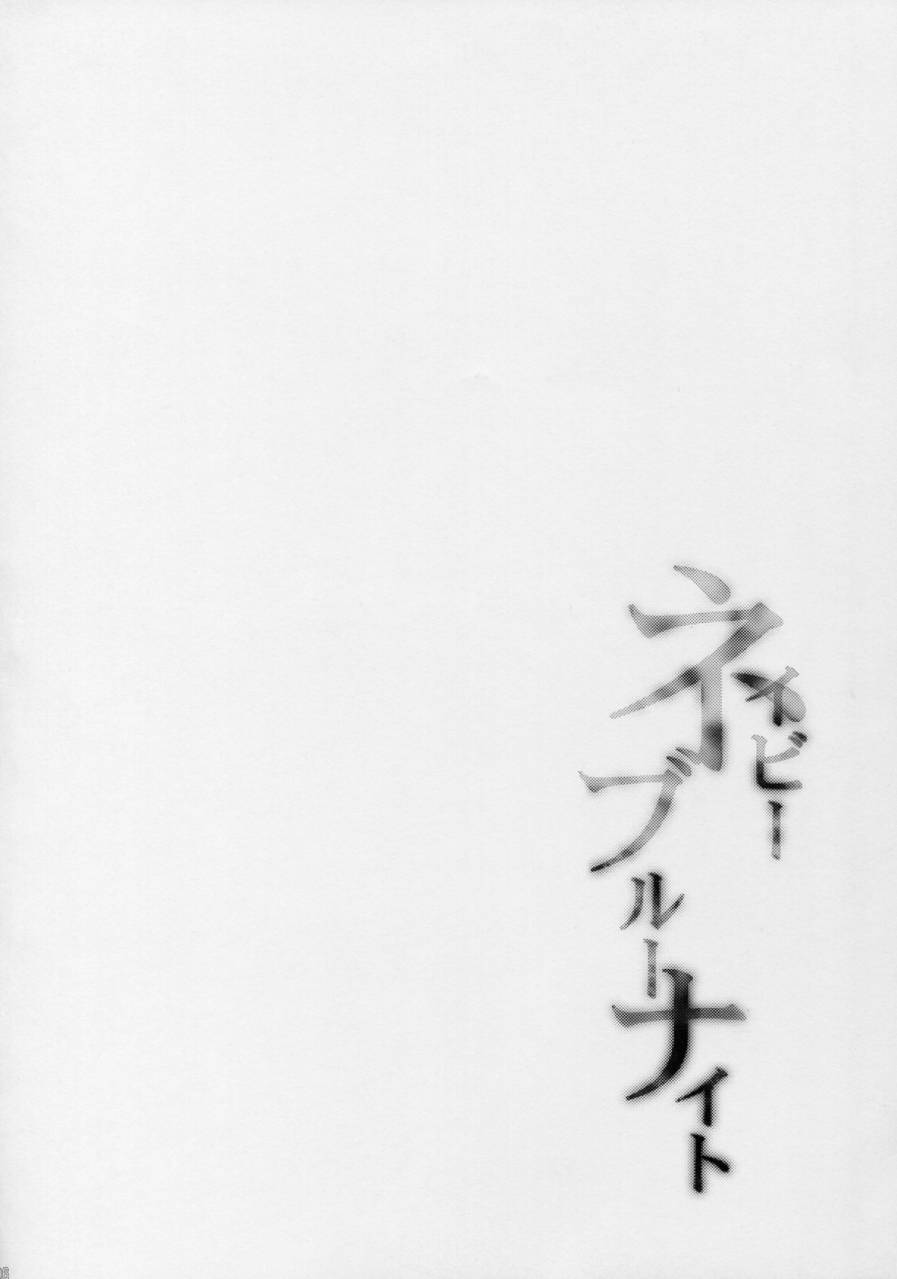 ネイビー
ブルー
ナイト